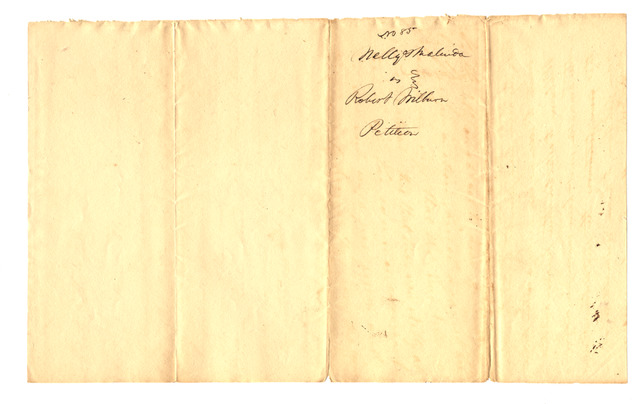 No 85
Nelly & Malinda
vs
Robert Wilburn
Petition